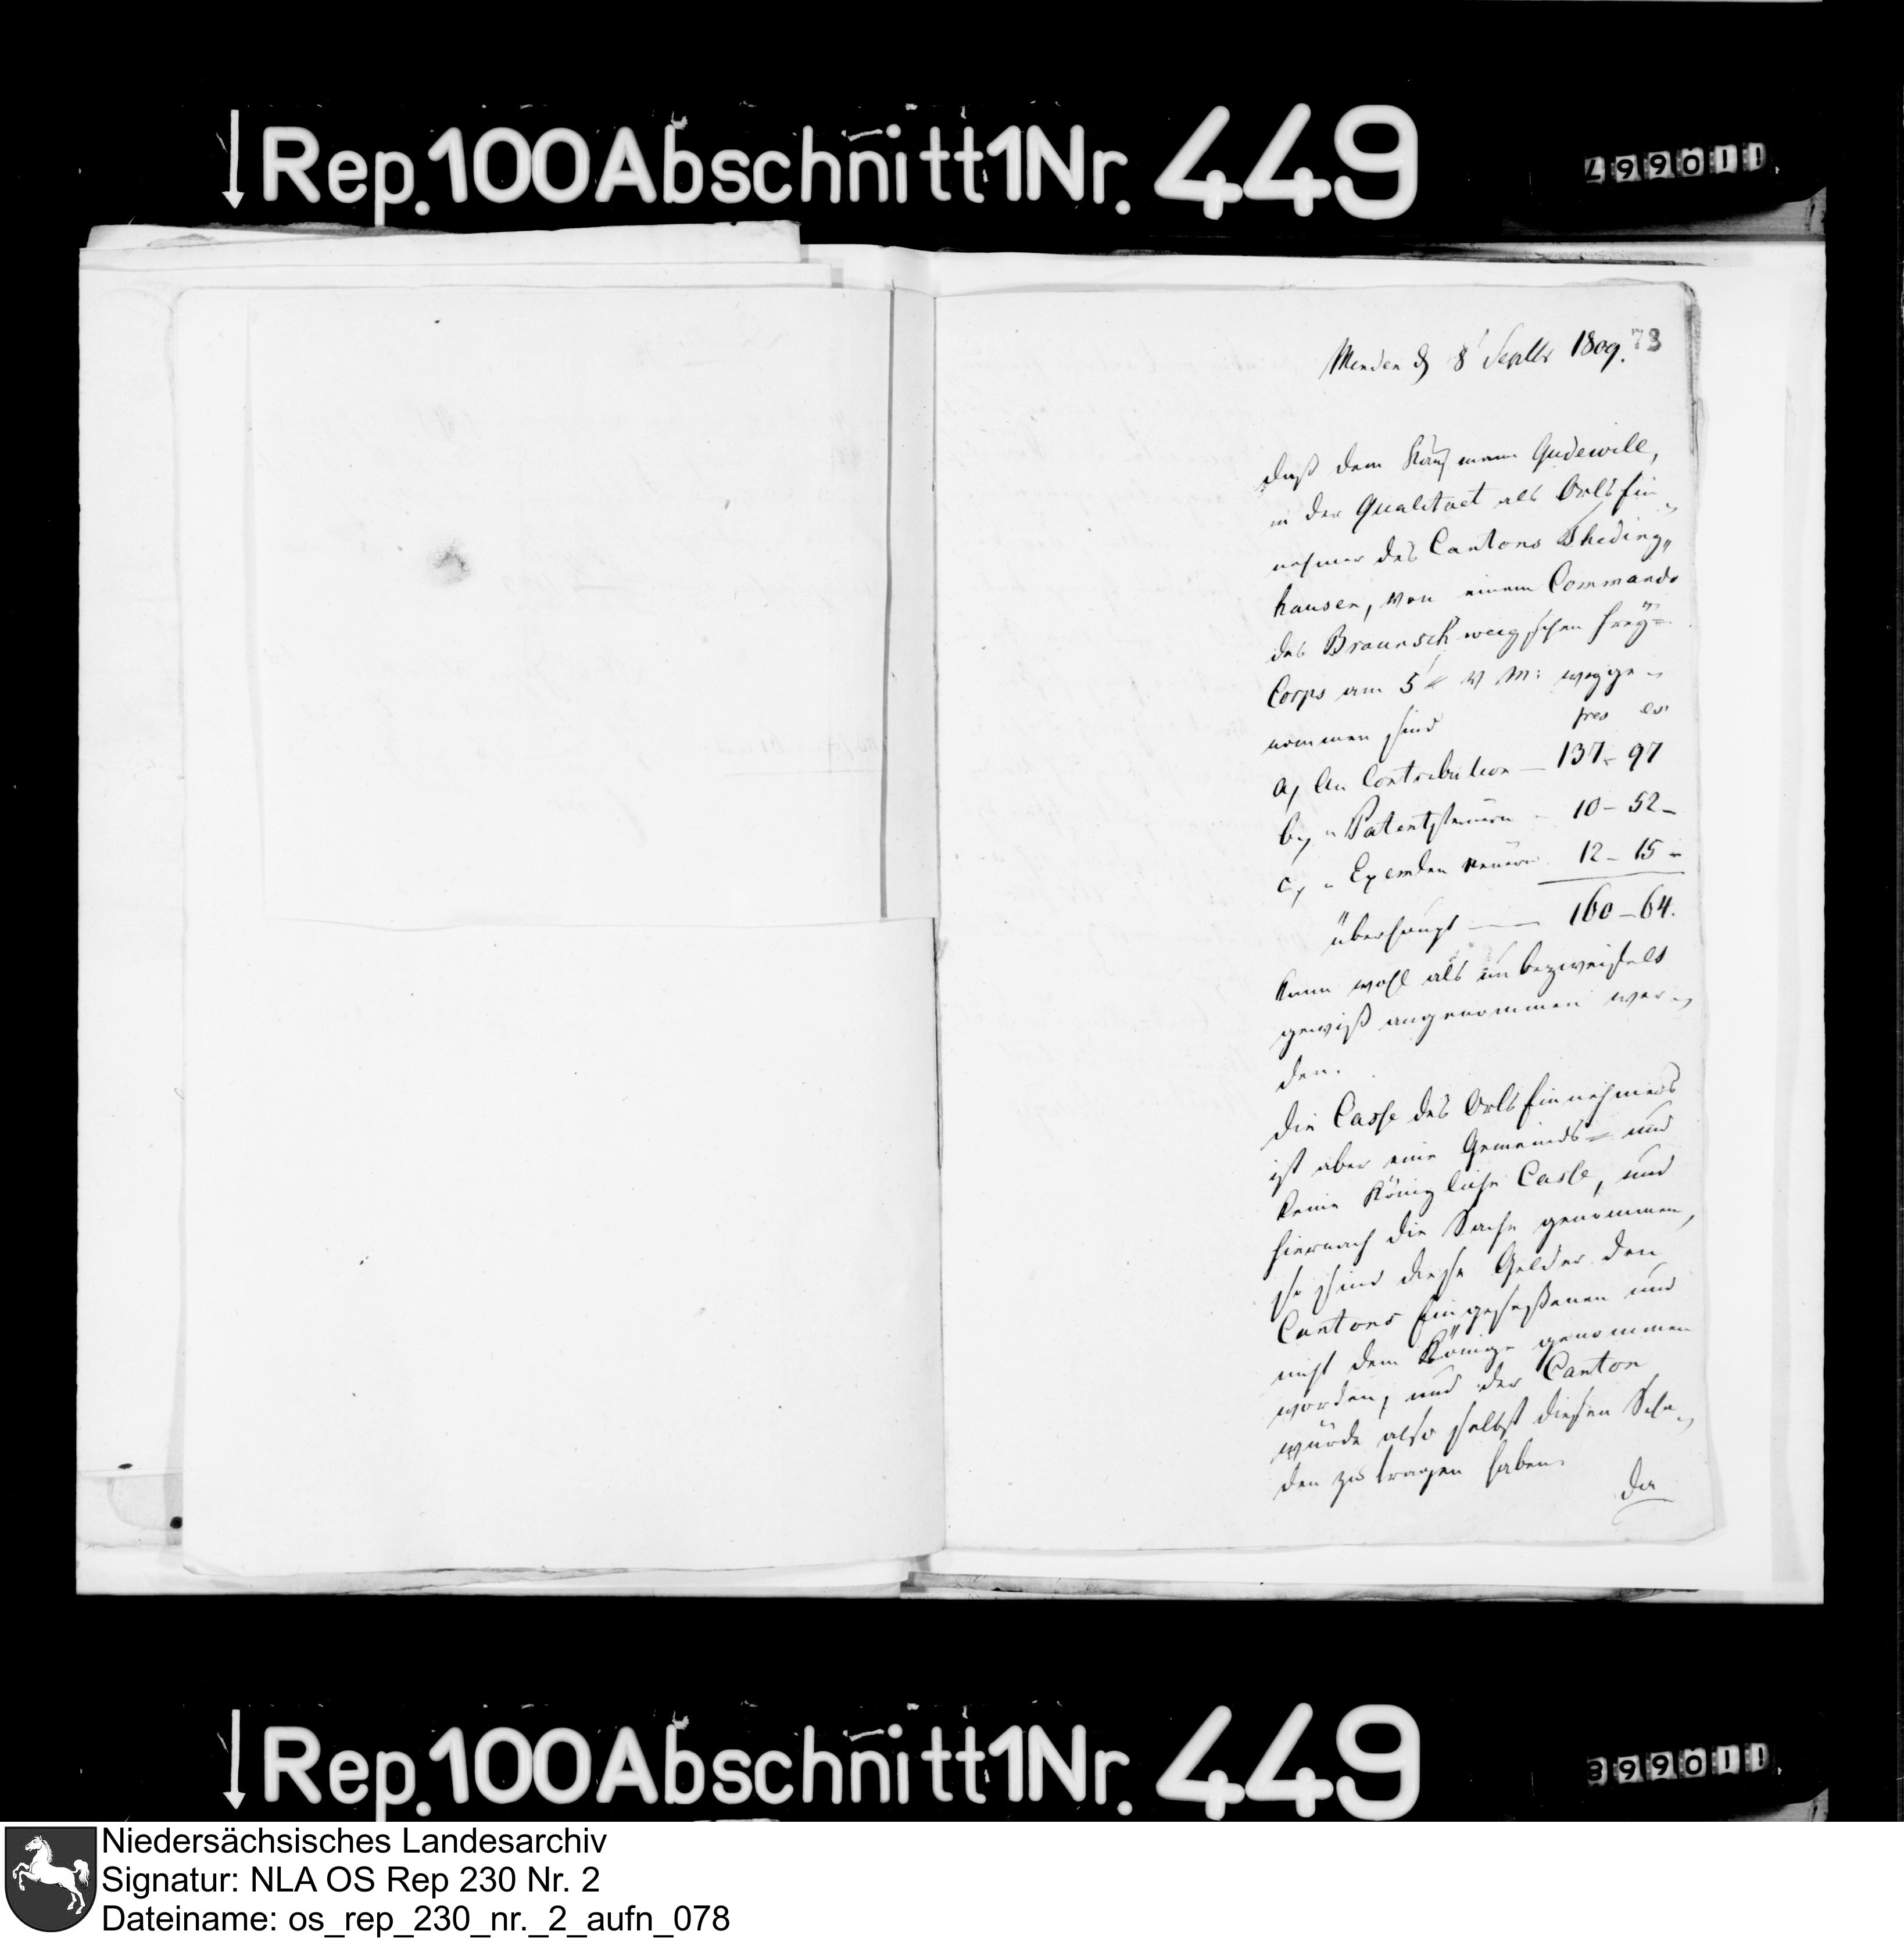 ↓Rep.100Abschnitt1Nr.449
499011
73
Minden d 8t Septbr 1809.
daß dem Kaufmann Gudewill,
in der Qualitaet als Ortsein„
nehmer des Cantons Theding„
hausen, von einem Commando
des Braunschweigschen Frey=
Corps am 5t v M: wegge„
nommen sind
frcs cs
a, An Contribution — 137 - 97
b, " Patentsteuern - 10 - 52 -
c, " Exemten steuern 12 - 15 -
überhaupt —— 160 - 64.
kann wohl als unbezweifelt
gewiß angenommen wer„
den.
Die Casse des Ortseinnehmers
ist aber eine Gemeinds= und
keine Königliche Casse, und
hiernach die Sache genommen,
so sind diese Gelder den
Cantons Eingeseßenen und
nicht dem Könige genommen
worden, und der Canton
würde also selbst diesen Scha„
den zu tragen haben.
Da
↓Rep.100Abschnitt1Nr.449
399011
Niedersächsisches Landesarchiv
Signatur: NLA OS Rep 230 Nr. 2
Dateiname: os_rep_230_nr._2_aufn_078